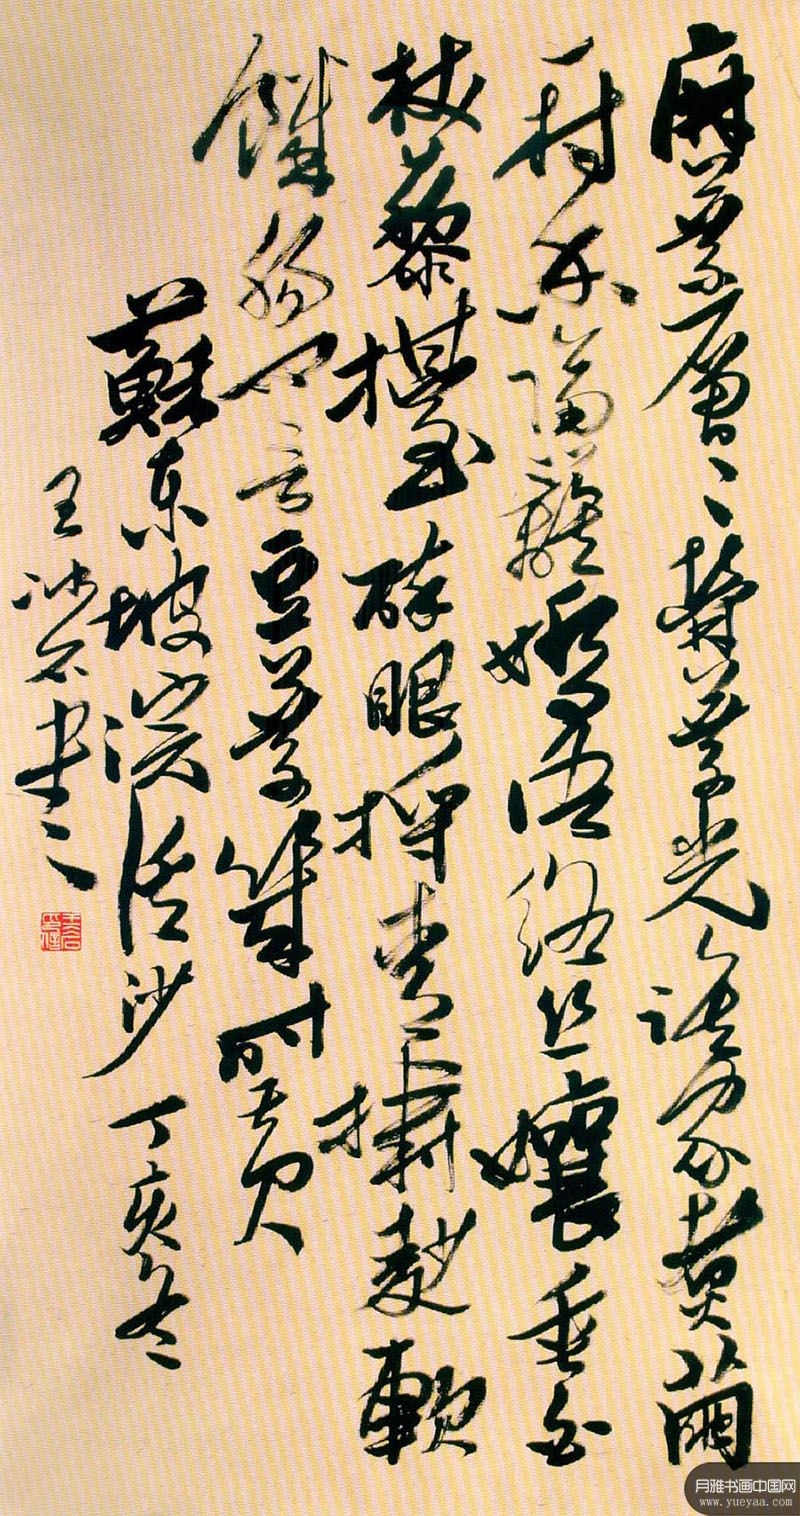 麻葉層々檾葉光誰家煮繭
一村香隔籬嬌語絡丝孃垂白
杖藜擡醉眼捋青擣麨軟
饑腸问言豆葉幾時黄
蘇东坡浣溪沙 丁亥冬
王冰石書
月雅书画中国网
www.yueyaa.com